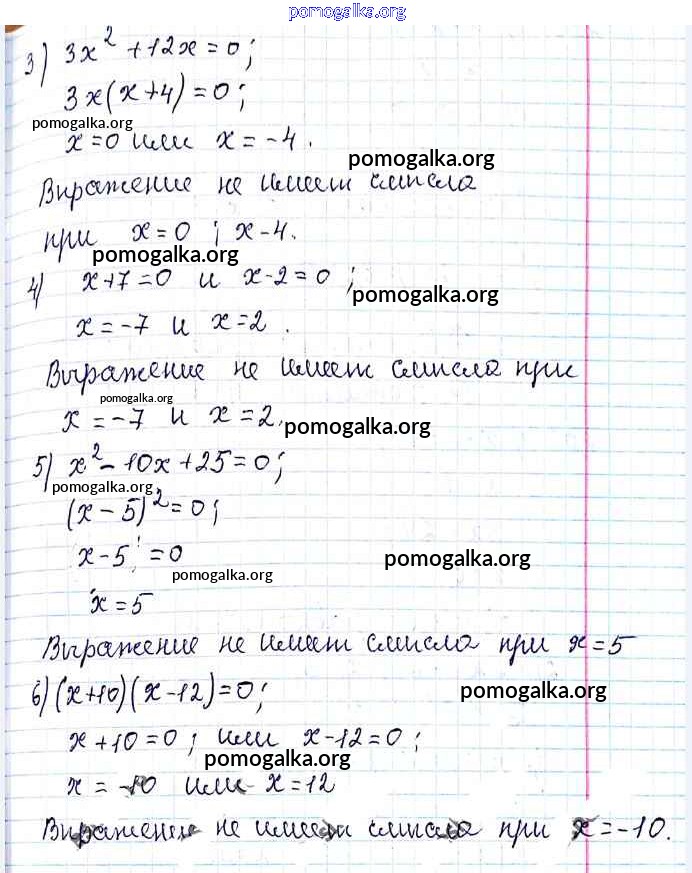 pomogalka.org
3) 3x² + 12x = 0;
3x(x+4) = 0;
pomogalka.org
x=0 или x = -4.
pomogalka.org
Выражение не имеет смысла
при x = 0 ; x-4.
pomogalka.org
4) x+7=0 и x-2=0;
pomogalka.org
x = -7 и x=2.
Выражение не имеет смысла при
pomogalka.org
x = -7 и x = 2.
pomogalka.org
5) x² - 10x + 25 = 0;
pomogalka.org
(x - 5)² = 0;
x-5 = 0
pomogalka.org
pomogalka.org
x = 5
Выражение не имеет смысла при x = 5
6) (x+10)(x-12) = 0;
pomogalka.org
x+10=0; или x-12=0;
pomogalka.org
x = -10 или x = 12
Выражение не имеет смысла при x = -10.